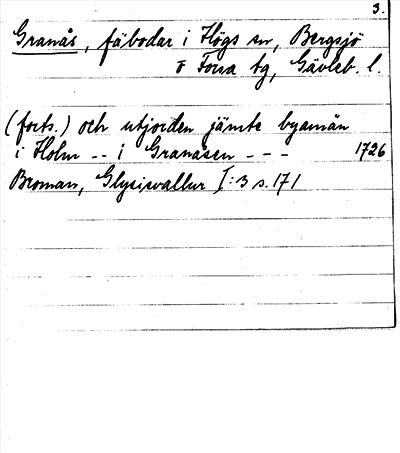 3.
Granås, fäbodar i Högs sn, Bergsjö
o Forsa tg, Gävleb. l.
(forts.) och utjorden jämte byamän
i Holm -- i Granåsen --- 1726
Broman, Glysisvallur I:3 s. 171